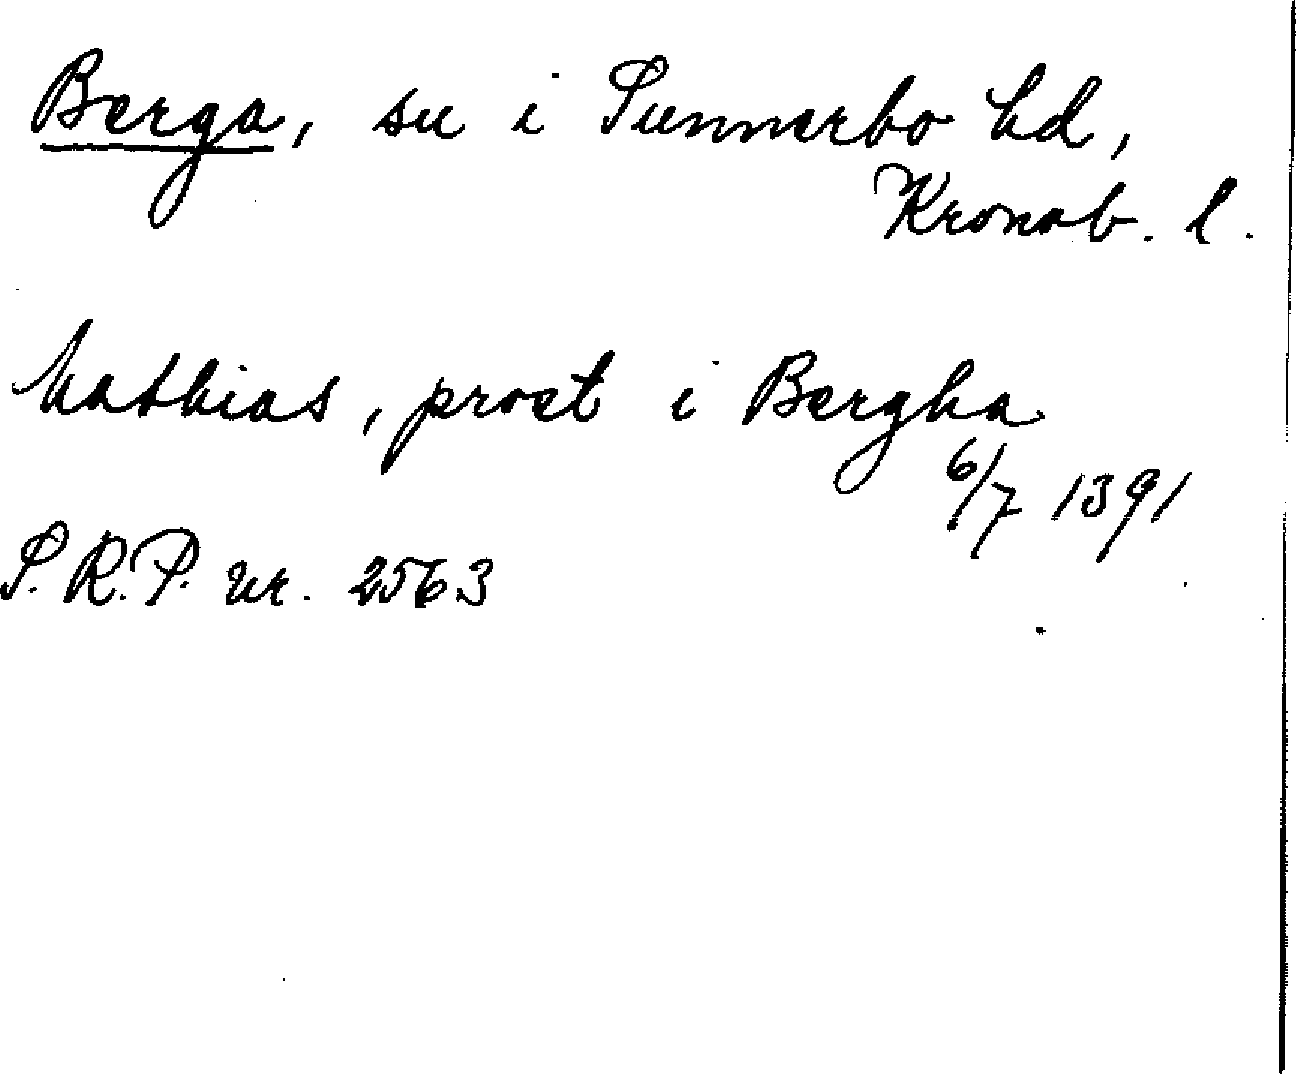 Berga, sn i Sunnerbo hd,
Kronob. l.
Mathias, prost i Bergha
6/7 1391
S.R.P. nr. 2563